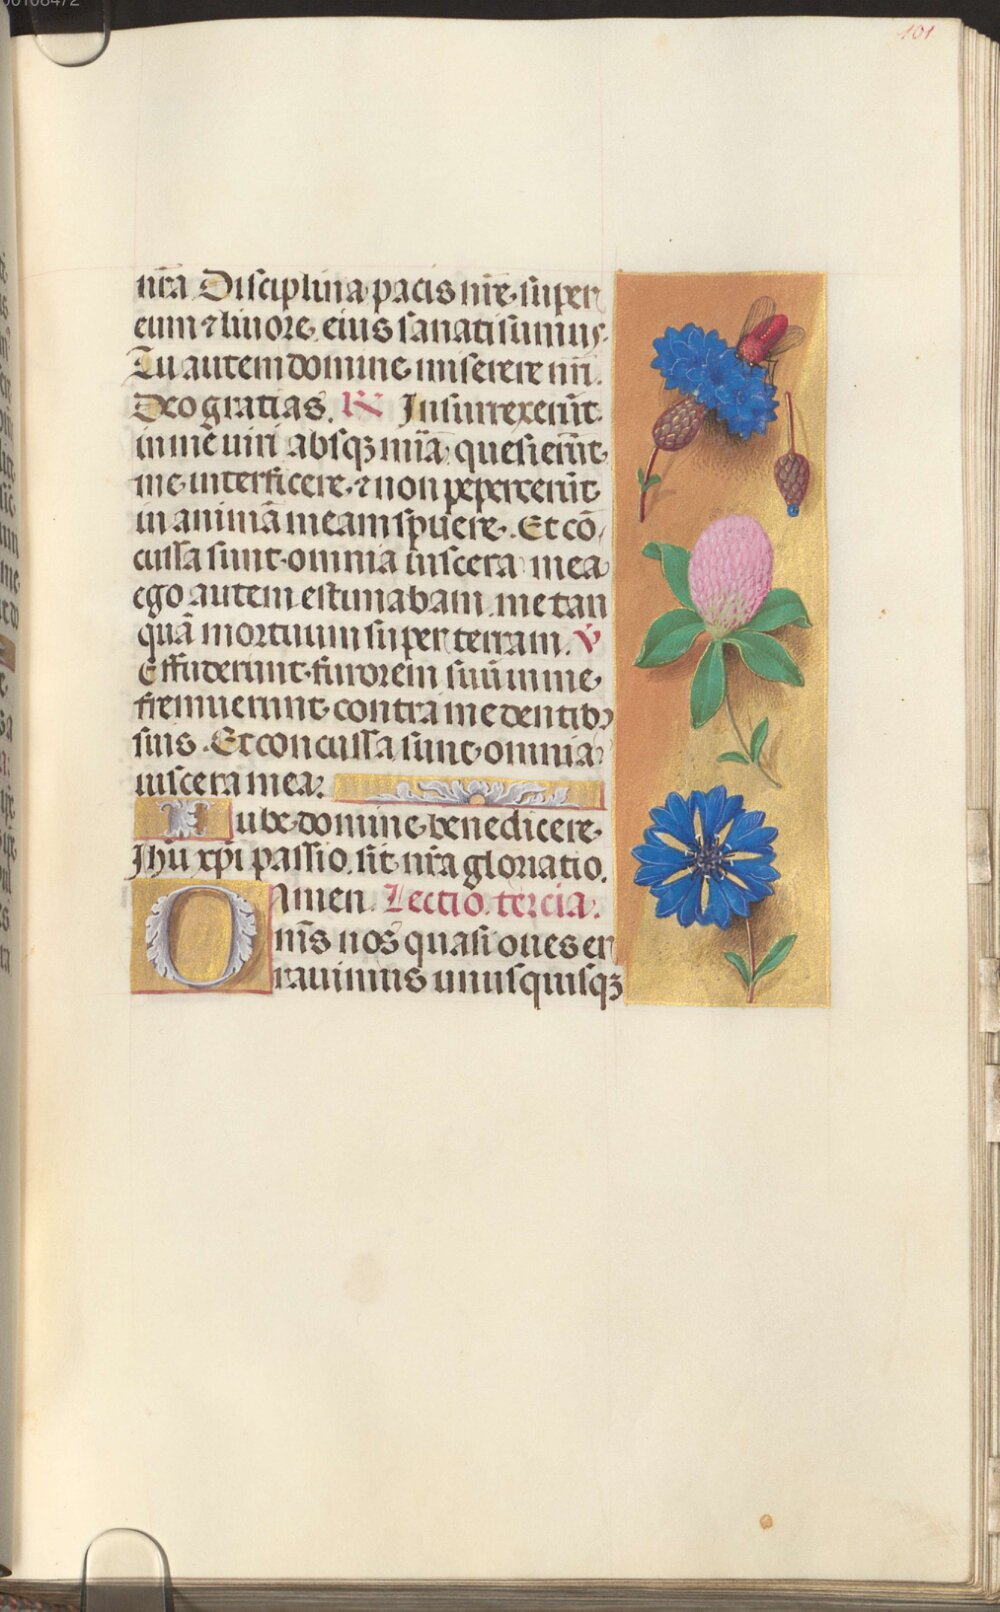 00108472
101
nr̄a Disciplina pacis nr̄e super
eum ⁊ livore eius sanati sumus.
Tu autem domine miserere nr̄i.
Deo gratias. R Insurrexerūt
in me viri absqꝫ mīa quesierūt
me interficere, ⁊ non pepercerūt
in animā meam spuere. Et cō
cussa sunt omnia viscera mea
ego autem estimabam me tan
quā mortuum super terram. V
Effuderunt furorem suū in me
fremuerunt contra me dentibꝰ
suis. Et concussa sunt omnia
viscera mea.
Iube domine benedicere
Jhū xp̄i passio sit nr̄a gloriatio.
Amen. Lectio tercia.
Om̄s nos quasi oves er
ravimus unusquisqꝫ